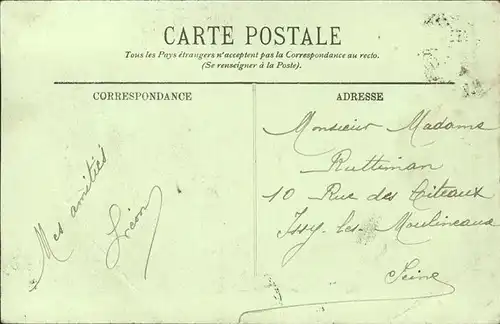 CARTE POSTALE
Tous les Pays étrangers n'acceptent pas la Correspondance au recto.
(Se renseigner à la Poste).
CORRESPONDANCE
ADRESSE
Mes amitiés
Monsieur Madame
Ruttiman
10 Rue des Citeaux
Issy-les-Moulineaux
Seine